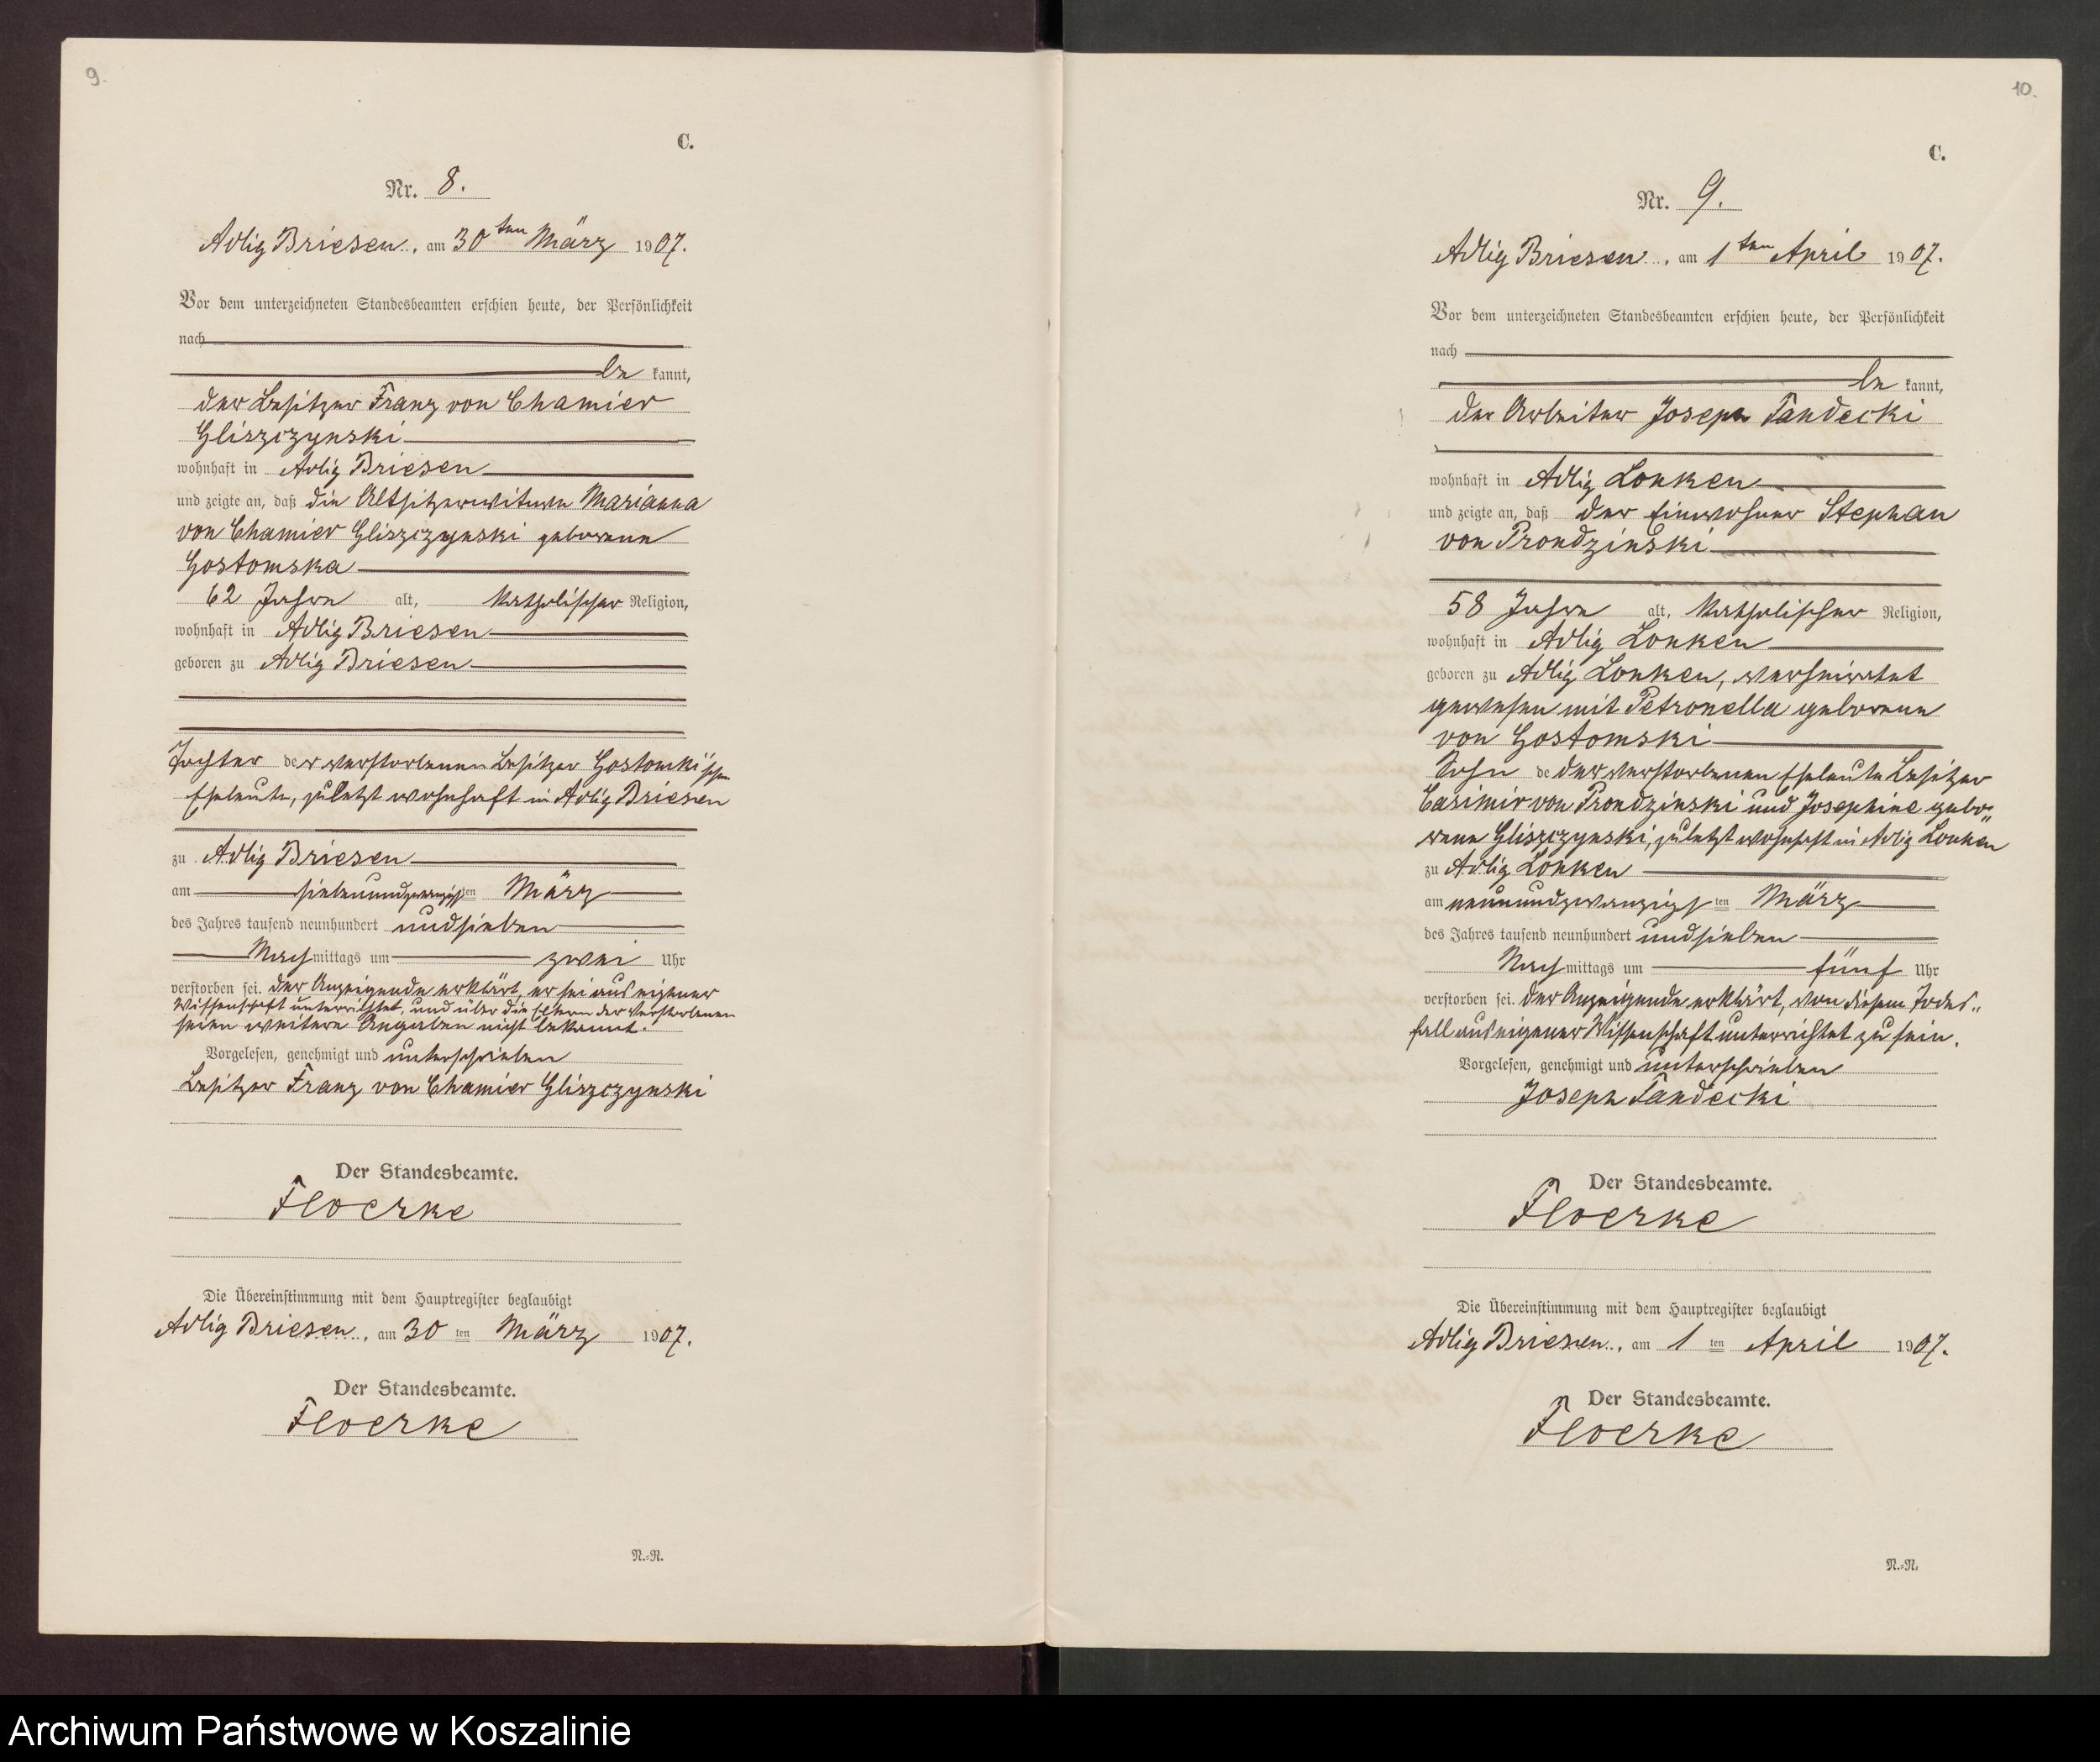 9.
C.
Nr. 8.
Adlig Briesen, am 30ten März 1907.
Vor dem unterzeichneten Standesbeamten erschien heute, der Persönlichkeit
nach
be kannt,
der Besitzer Franz von Chamier
Gliszczynski
wohnhaft in Adlig Briesen
und zeigte an, daß die Altsitzerwitwe Marianna
von Chamier Gliszczynski geborene
Gostomska
62 Jahre alt, katholischer Religion,
wohnhaft in Adlig Briesen
geboren zu Adlig Briesen
Tochter der verstorbenen Besitzer Gostomski'schen
Eheleute, zuletzt wohnhaft in Adlig Briesen
zu Adlig Briesen
am siebenundzwanzigsten März
des Jahres tausend neunhundert undsieben
Nachmittags um zwei Uhr
verstorben sei. Der Anzeigende erklärt, er sei aus eigener
Wissenschaft unterrichtet, und über die Eltern der Verstorbenen
seien weitere Angaben nicht bekannt.
Vorgelesen, genehmigt und unterschrieben
Besitzer Franz von Chamier Gliszczynski
Der Standesbeamte.
Floerke
Die Übereinstimmung mit dem Hauptregister beglaubigt
Adlig Briesen, am 30 ten März 1907.
Der Standesbeamte.
Floerke
N.-N.
10.
C.
Nr. 9.
Adlig Briesen, am 1ten April 1907.
Vor dem unterzeichneten Standesbeamten erschien heute, der Persönlichkeit
nach
be kannt,
der Arbeiter Joseph Tandecki
wohnhaft in Adlig Lonken
und zeigte an, daß der Einwohner Stephan
von Prondzinski
58 Jahre alt, katholischer Religion,
wohnhaft in Adlig Lonken
geboren zu Adlig Lonken, verheiratet
gewesen mit Petronella geborene
von Gostomski
Sohn de der verstorbenen Eheleute Besitzer
Casimir von Prondzinski und Josephine gebo-
rene Gliszczynski, zuletzt wohnhaft in Adlig Lonken
zu Adlig Lonken
am neunundzwanzigsten März
des Jahres tausend neunhundert undsieben
Nachmittags um fünf Uhr
verstorben sei. Der Anzeigende erklärt, von diesem Todes-
fall aus eigener Wissenschaft unterrichtet zu sein.
Vorgelesen, genehmigt und unterschrieben
Joseph Tandecki
Der Standesbeamte.
Floerke
Die Übereinstimmung mit dem Hauptregister beglaubigt
Adlig Briesen, am 1 ten April 1907.
Der Standesbeamte.
Floerke
N.-N.
Archiwum Państwowe w Koszalinie